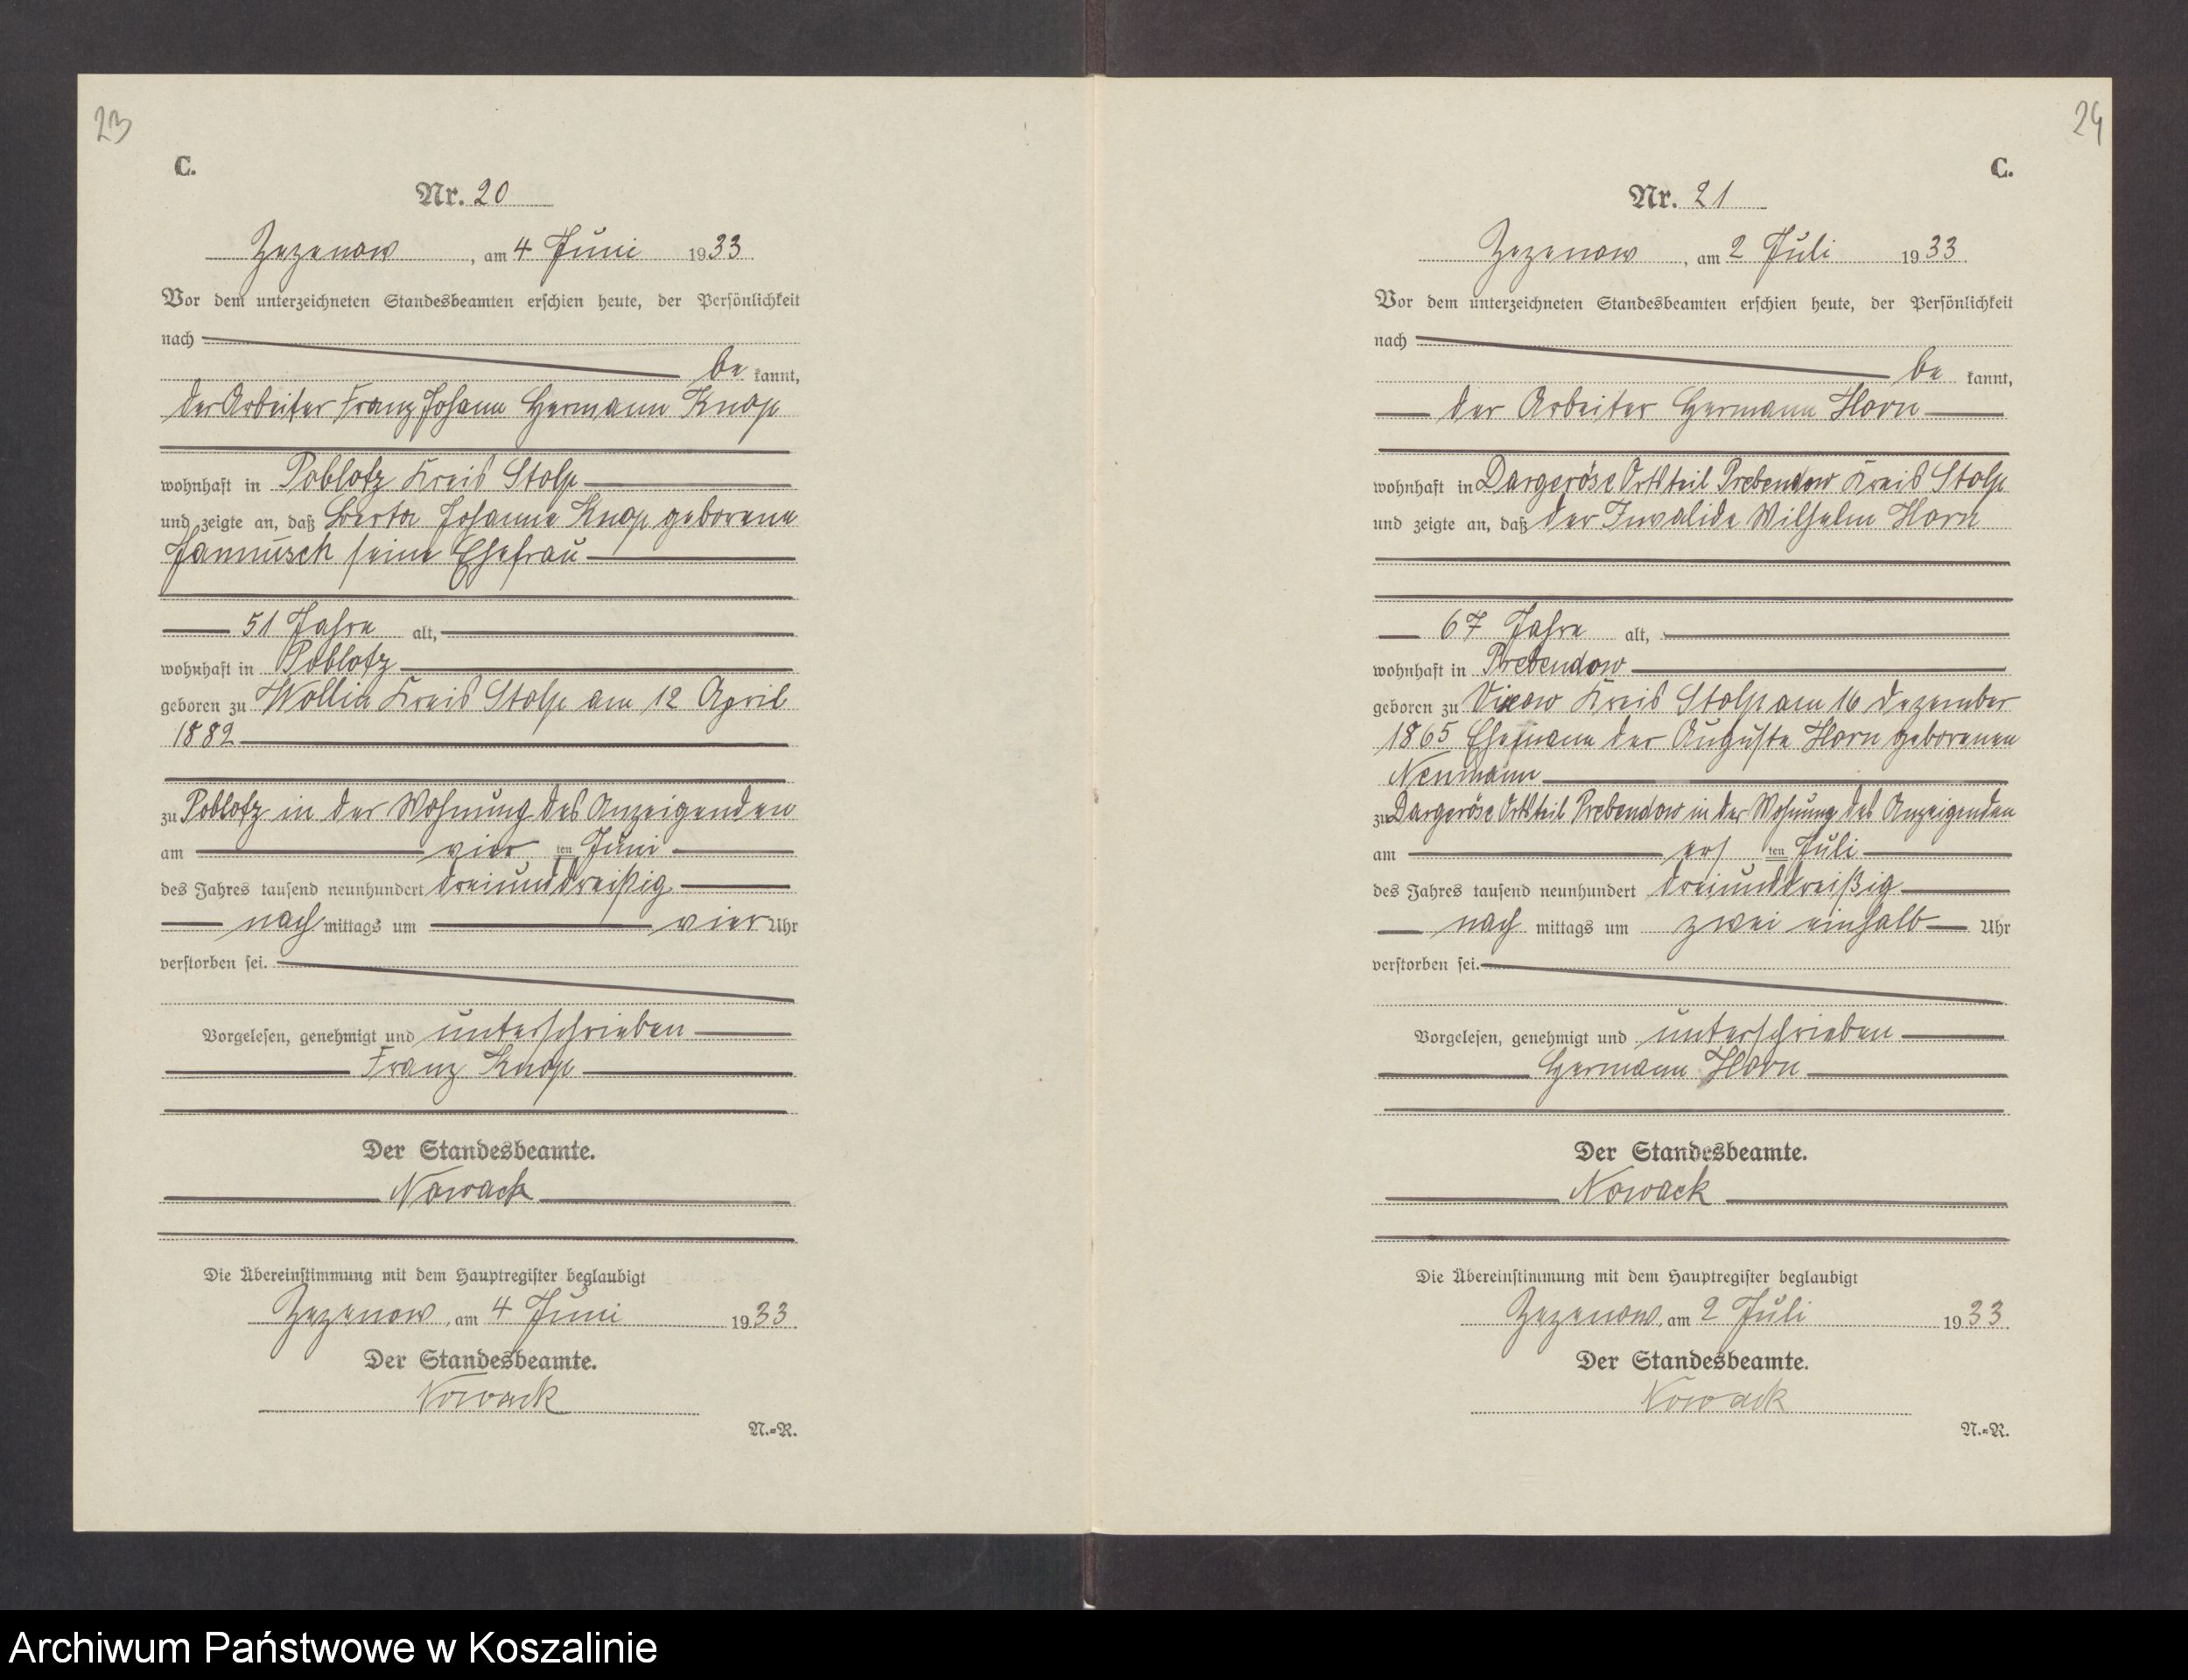 23
C.
Nr. 20
Zezenow, am 4 Juni 1933
Vor dem unterzeichneten Standesbeamten erschien heute, der Persönlichkeit
nach
be kannt,
der Arbeiter Franz Johann Hermann Knop
wohnhaft in Poblotz Kreis Stolp
und zeigte an, daß Berta Johanne Knop geborene
Jannusch seine Ehefrau
51 Jahre alt,
wohnhaft in Poblotz
geboren zu Wollin Kreis Stolp am 12 April
1882
zu Poblotz in der Wohnung des Anzeigenden
am vier ten Juni
des Jahres tausend neunhundert dreiunddreißig
nach mittags um vier Uhr
verstorben sei.
Vorgelesen, genehmigt und unterschrieben
Franz Knop
Der Standesbeamte.
Nowack
Die Übereinstimmung mit dem Hauptregister beglaubigt
Zezenow, am 4 Juni 1933
Der Standesbeamte.
Nowack
N.=R.
24
C.
Nr. 21
Zezenow, am 2 Juli 1933
Vor dem unterzeichneten Standesbeamten erschien heute, der Persönlichkeit
nach
be kannt,
der Arbeiter Hermann Horn
wohnhaft in Dargeröse Ortsteil Prebendow Kreis Stolp
und zeigte an, daß der Invalide Wilhelm Horn
67 Jahre alt,
wohnhaft in Prebendow
geboren zu Vixow Kreis Stolp am 16 Dezember
1865 Ehemann der Auguste Horn geborenen
Neumann
zu Dargeröse Ortsteil Prebendow in der Wohnung des Anzeigenden
am ers ten Juli
des Jahres tausend neunhundert dreiunddreißig
nach mittags um zwei einhalb Uhr
verstorben sei.
Vorgelesen, genehmigt und unterschrieben
Hermann Horn
Der Standesbeamte.
Nowack
Die Übereinstimmung mit dem Hauptregister beglaubigt
Zezenow, am 2 Juli 1933
Der Standesbeamte.
Nowack
N.=R.
Archiwum Państwowe w Koszalinie